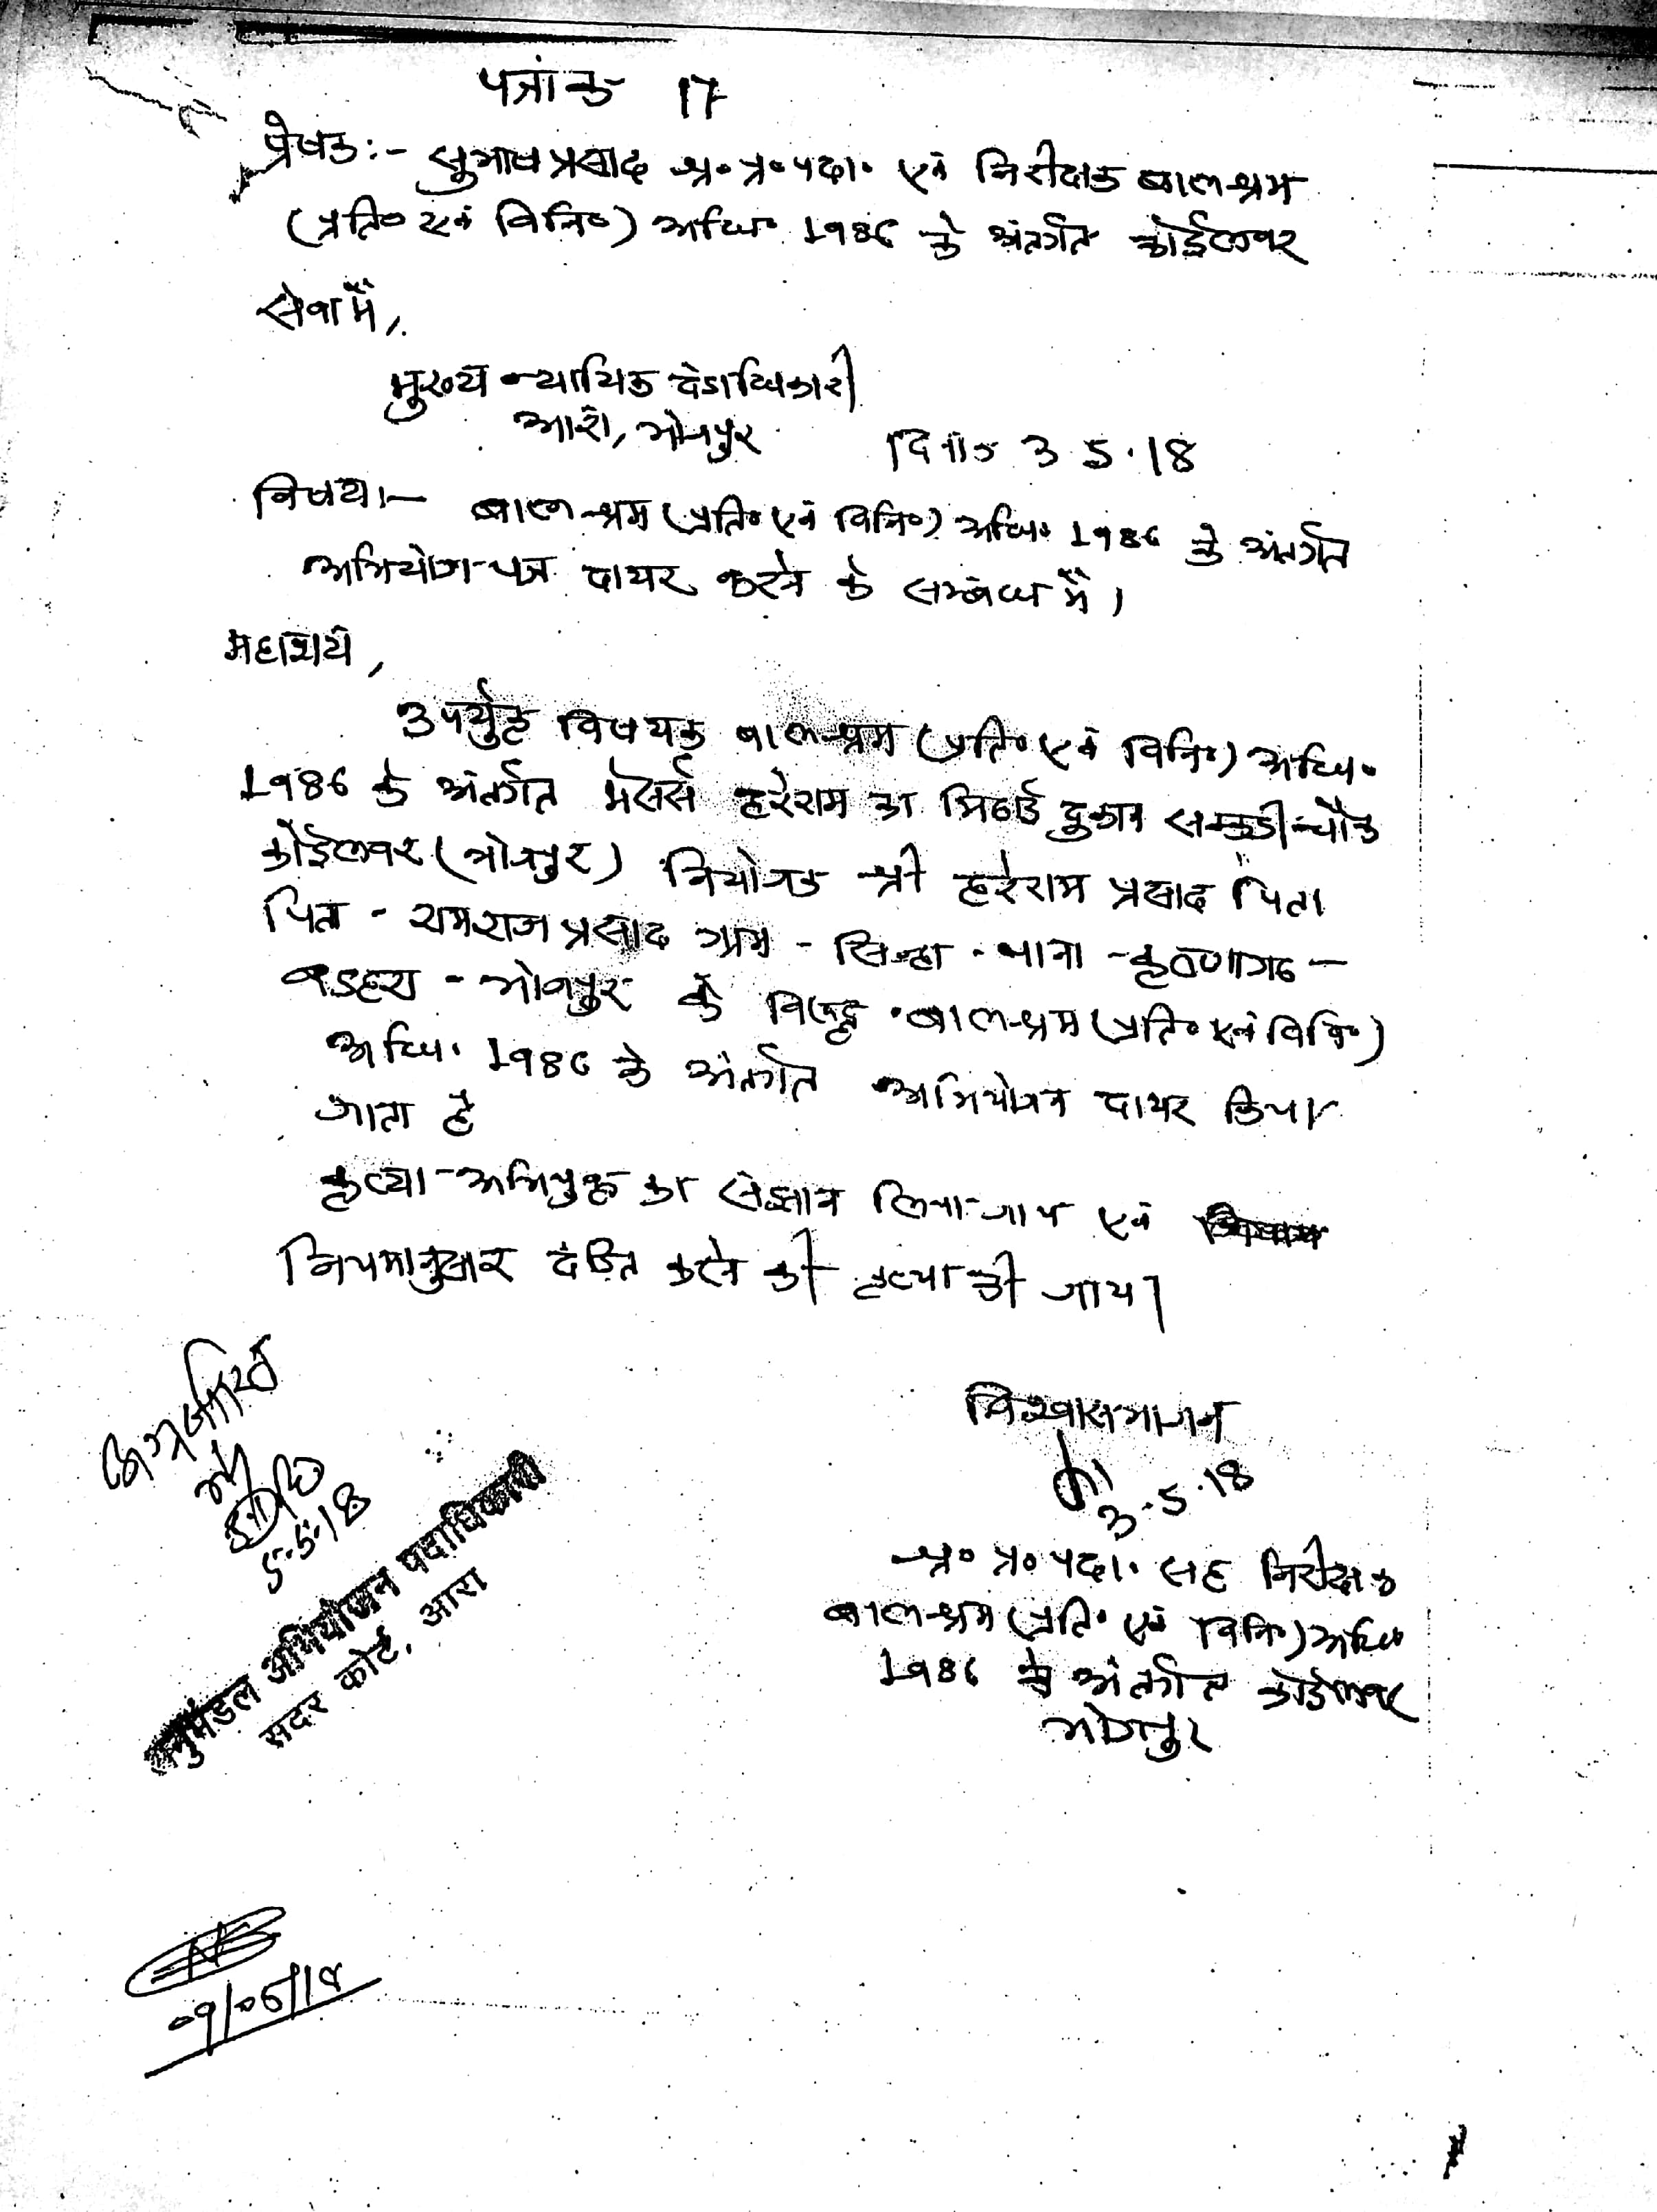 पत्रांक 17
प्रेषक:- सुभाष प्रसाद श्र० प्र० पदा० एवं निरीक्षक बाल श्रम
(प्रति० एवं विनि०) अधि० 1986 के अंतर्गत कोईलवर
सेवा में,
मुख्य न्यायिक दंडाधिकारी
आरा, भोजपुर
दिनांक 3.5.18
विषय:- बाल श्रम (प्रति० एवं विनि०) अधि० 1986 के अंतर्गत
अभियोग पत्र दायर करने के सम्बंध में।
महाशय,
उपर्युक्त विषयक बाल श्रम (प्रति० एवं विनि०) अधि०
1986 के अंतर्गत मेसर्स हरेराम का मिठाई दुकान सकड्डी चौक
कोईलवर (भोजपुर) नियोजक श्री हरेराम प्रसाद पिता
पिता - रामराज प्रसाद ग्राम - सिन्हा - थाना - कृष्णागढ -
बड़हरा - भोजपुर के विरुद्ध बाल श्रम (प्रति० एवं विनि०)
अधि० 1986 के अंतर्गत अभियोजन दायर किया
जाता है
कृप्या अभियुक्त का संज्ञान लिया जाय एवं
नियमानुसार दंडित करने की कृप्या की जाय।
विश्वासभाजन
3.5.18
श्र० प्र० पदा० सह निरीक्षक
बाल श्रम (प्रति० एवं विनि०) अधि०
1986 के अंतर्गत कोईलवर
भोजपुर
अग्रसारित
5.5.18
अनुमंडल अभियोजन पदाधिकारी
सदर कोर्ट, आरा
09/05/18